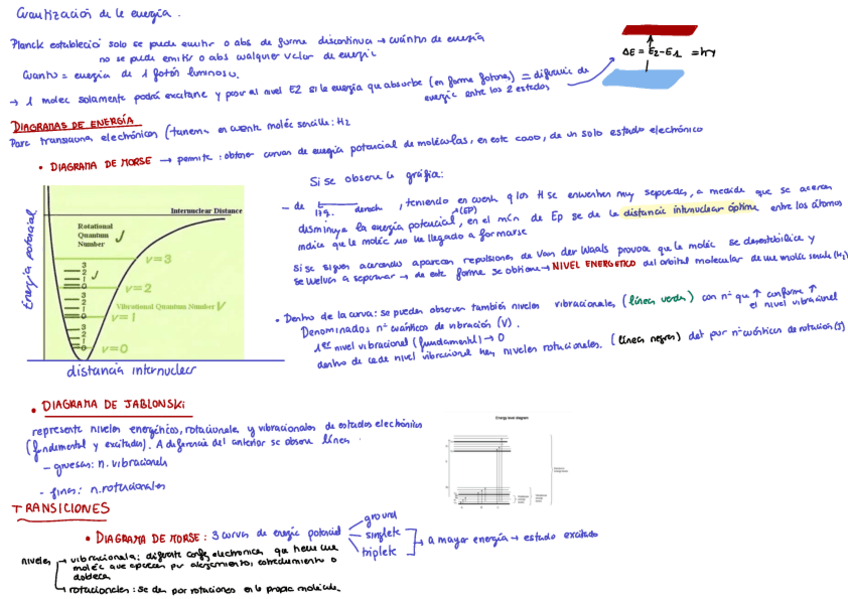 Cuantización de le energía.
Planck estableció solo se puede emitir o abs de forma discontinua → cuántos de energía
no se puede emitir o abs cualquier valor de energía
Cuanto = energía de 1 fotón luminoso.
→ 1 molec solamente podrá excitarse y pasar al nivel E2 si la energía que absorbe (en forma fotones) = diferencia de
energía entre los 2 estados
ΔE = E2-E1 = hγ
DIAGRAMAS DE ENERGÍA
Para transiciones electrónicas (tienen en cuenta moléc sencilla: H2
• DIAGRAMA DE MORSE → permite: obtener curvas de energía potencial de moléculas, en este caso, de un solo estado electrónico
Si se observa la gráfica:
- de izq. derech, teniendo en cuenta q los H se encuentran muy separados, a medida que se acercan
disminuye la energía potencial (EP), en el mín de Ep se da la distancia internuclear óptima entre los átomos
indica que la moléc no ha llegado a formarse
Si se siguen acercando aparecen repulsiones de Van der Waals provoca que la moléc se desestabilice y
se vuelvan a separar → de esta forma se obtiene → NIVEL ENERGETICO del orbital molecular de una moléc sencilla (H2)
Energía potencial
Internuclear Distance
Rotational
Quantum
Number J
v=3
3
2
1
0
J
v=2
Vibrational Quantum Number V
v=1
v=0
distancia internuclear
• Dentro de la curva: se pueden observar también niveles vibracionales (líneas verdes) con nº que ↑ conforme ↑
el nivel vibracional
Denominados nº cuánticos de vibración (V).
1er nivel vibracional (fundamental) → 0
dentro de cada nivel vibracional hay niveles rotacionales. (líneas negras) det por nº cuánticos de rotación (J)
• DIAGRAMA DE JABLONSKI
representa niveles energéticos, rotacionales y vibracionales de estados electrónicos
(fundamental y excitados). A diferencia del anterior se observa línea
- gruesas: n. vibracionales
- finas: n. rotacionales
Energy level diagram
TRANSICIONES
• DIAGRAMA DE MORSE: 3 curvas de energía potencial
ground
singlete
triplete
→ a mayor energía → estado excitado
niveles
→ vibracionales: diferente config electrónica que tiene una
moléc que aparecen por alargamiento, estrechamiento o
doblece
→ rotacionales: se dan por rotaciones en la propia molécula.